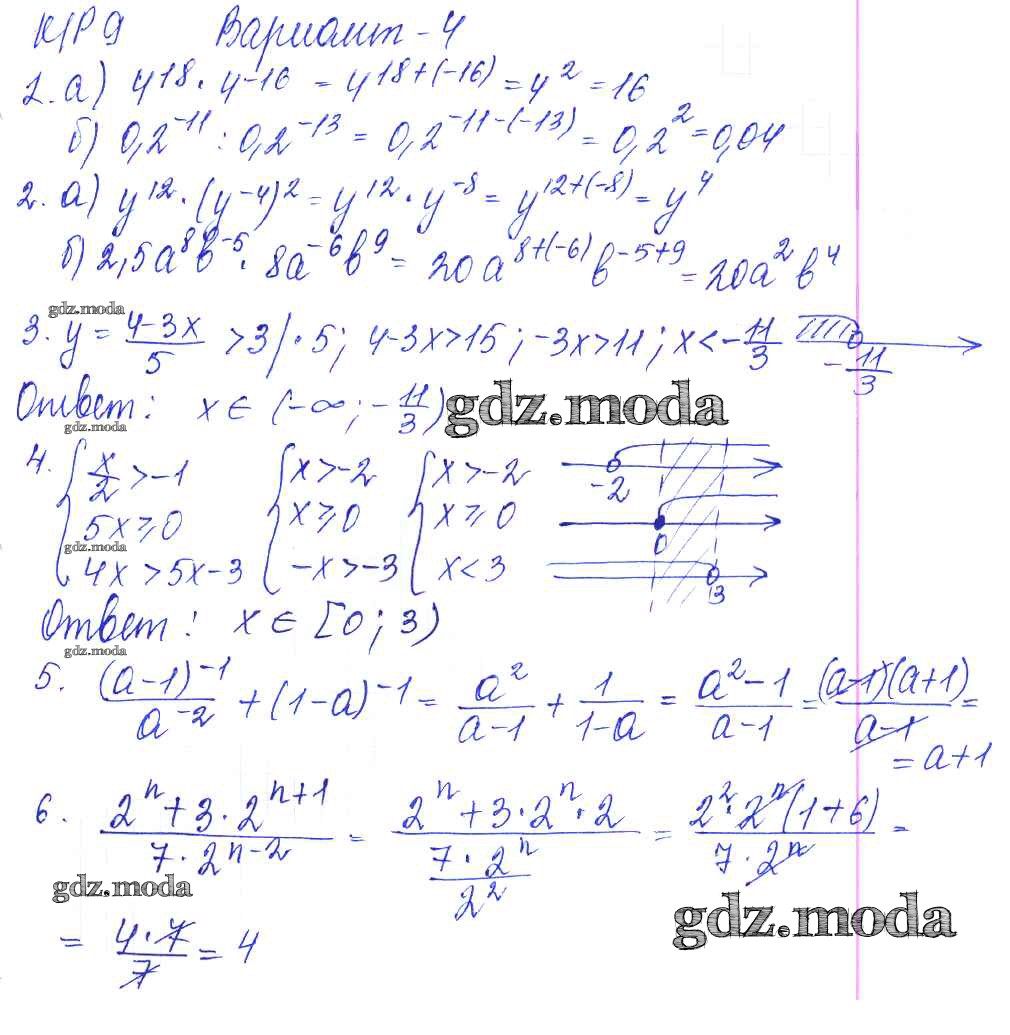 К/Р 9 Вариант - 4
1. а) 4^18 · 4^-16 = 4^18+(-16) = 4^2 = 16
б) 0,2^-11 : 0,2^-13 = 0,2^-11-(-13) = 0,2^2 = 0,04
2. а) y^12 · (y^-4)^2 = y^12 · y^-8 = y^12+(-8) = y^4
б) 2,5a^8b^-5 · 8a^-6b^9 = 20a^8+(-6) b^-5+9 = 20a^2b^4
gdz.moda
3. y = (4-3x)/5 > 3 | · 5; 4-3x>15; -3x>11; x < -11/3 -11/3
Ответ: x ∈ (-∞; -11/3) gdz.moda
gdz.moda
4. { x/2 > -1 { x > -2 { x > -2 -2
5x ⩾ 0 x ⩾ 0 x ⩾ 0 0
gdz.moda
4x > 5x-3 -x > -3 x < 3 3
Ответ: x ∈ [0; 3)
gdz.moda
5. (a-1)^-1/a^-2 + (1-a)^-1 = a^2/(a-1) + 1/(1-a) = (a^2-1)/(a-1) = (a-1)(a+1)/(a-1) =
= a+1
6. (2^n + 3·2^n+1)/(7·2^n-2) = (2^n + 3·2^n·2)/(7·2^n/2^2) = 2^2·2^n(1+6)/(7·2^n) =
gdz.moda
gdz.moda
= 4·7/7 = 4